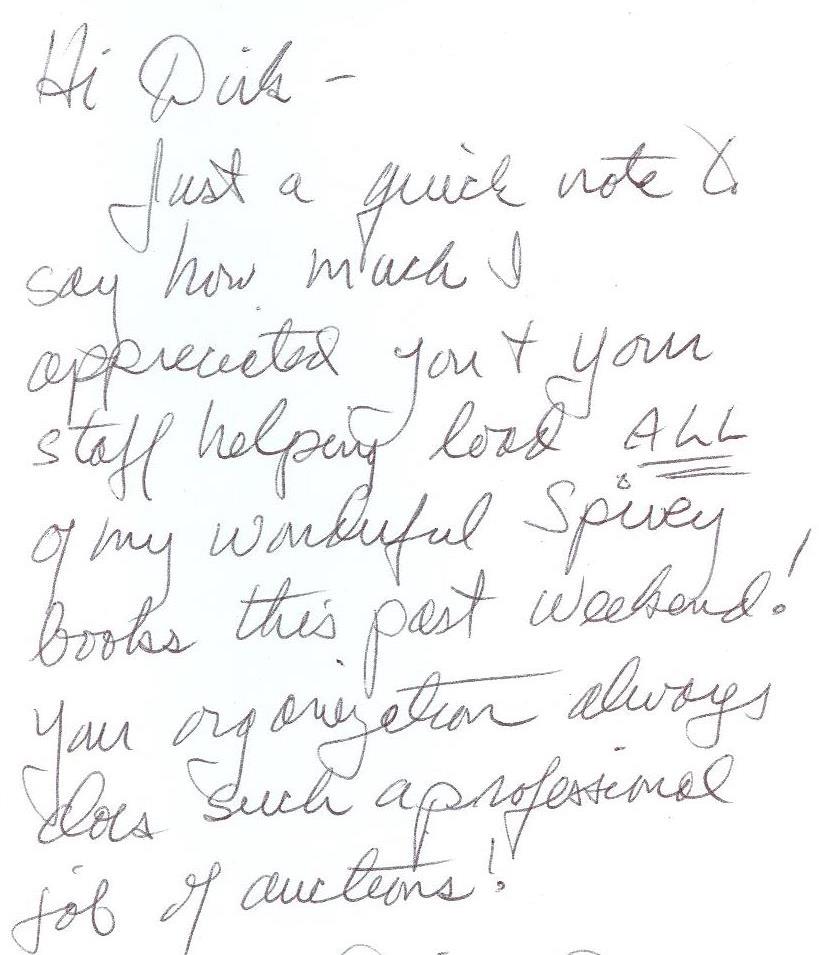 Hi Dirk -
Just a quick note to
say how much I
appreciated you + your
staff helping load ALL
of my wonderful Spivey
books this past weekend!
Your organization always
does such a professional
job of auctions!